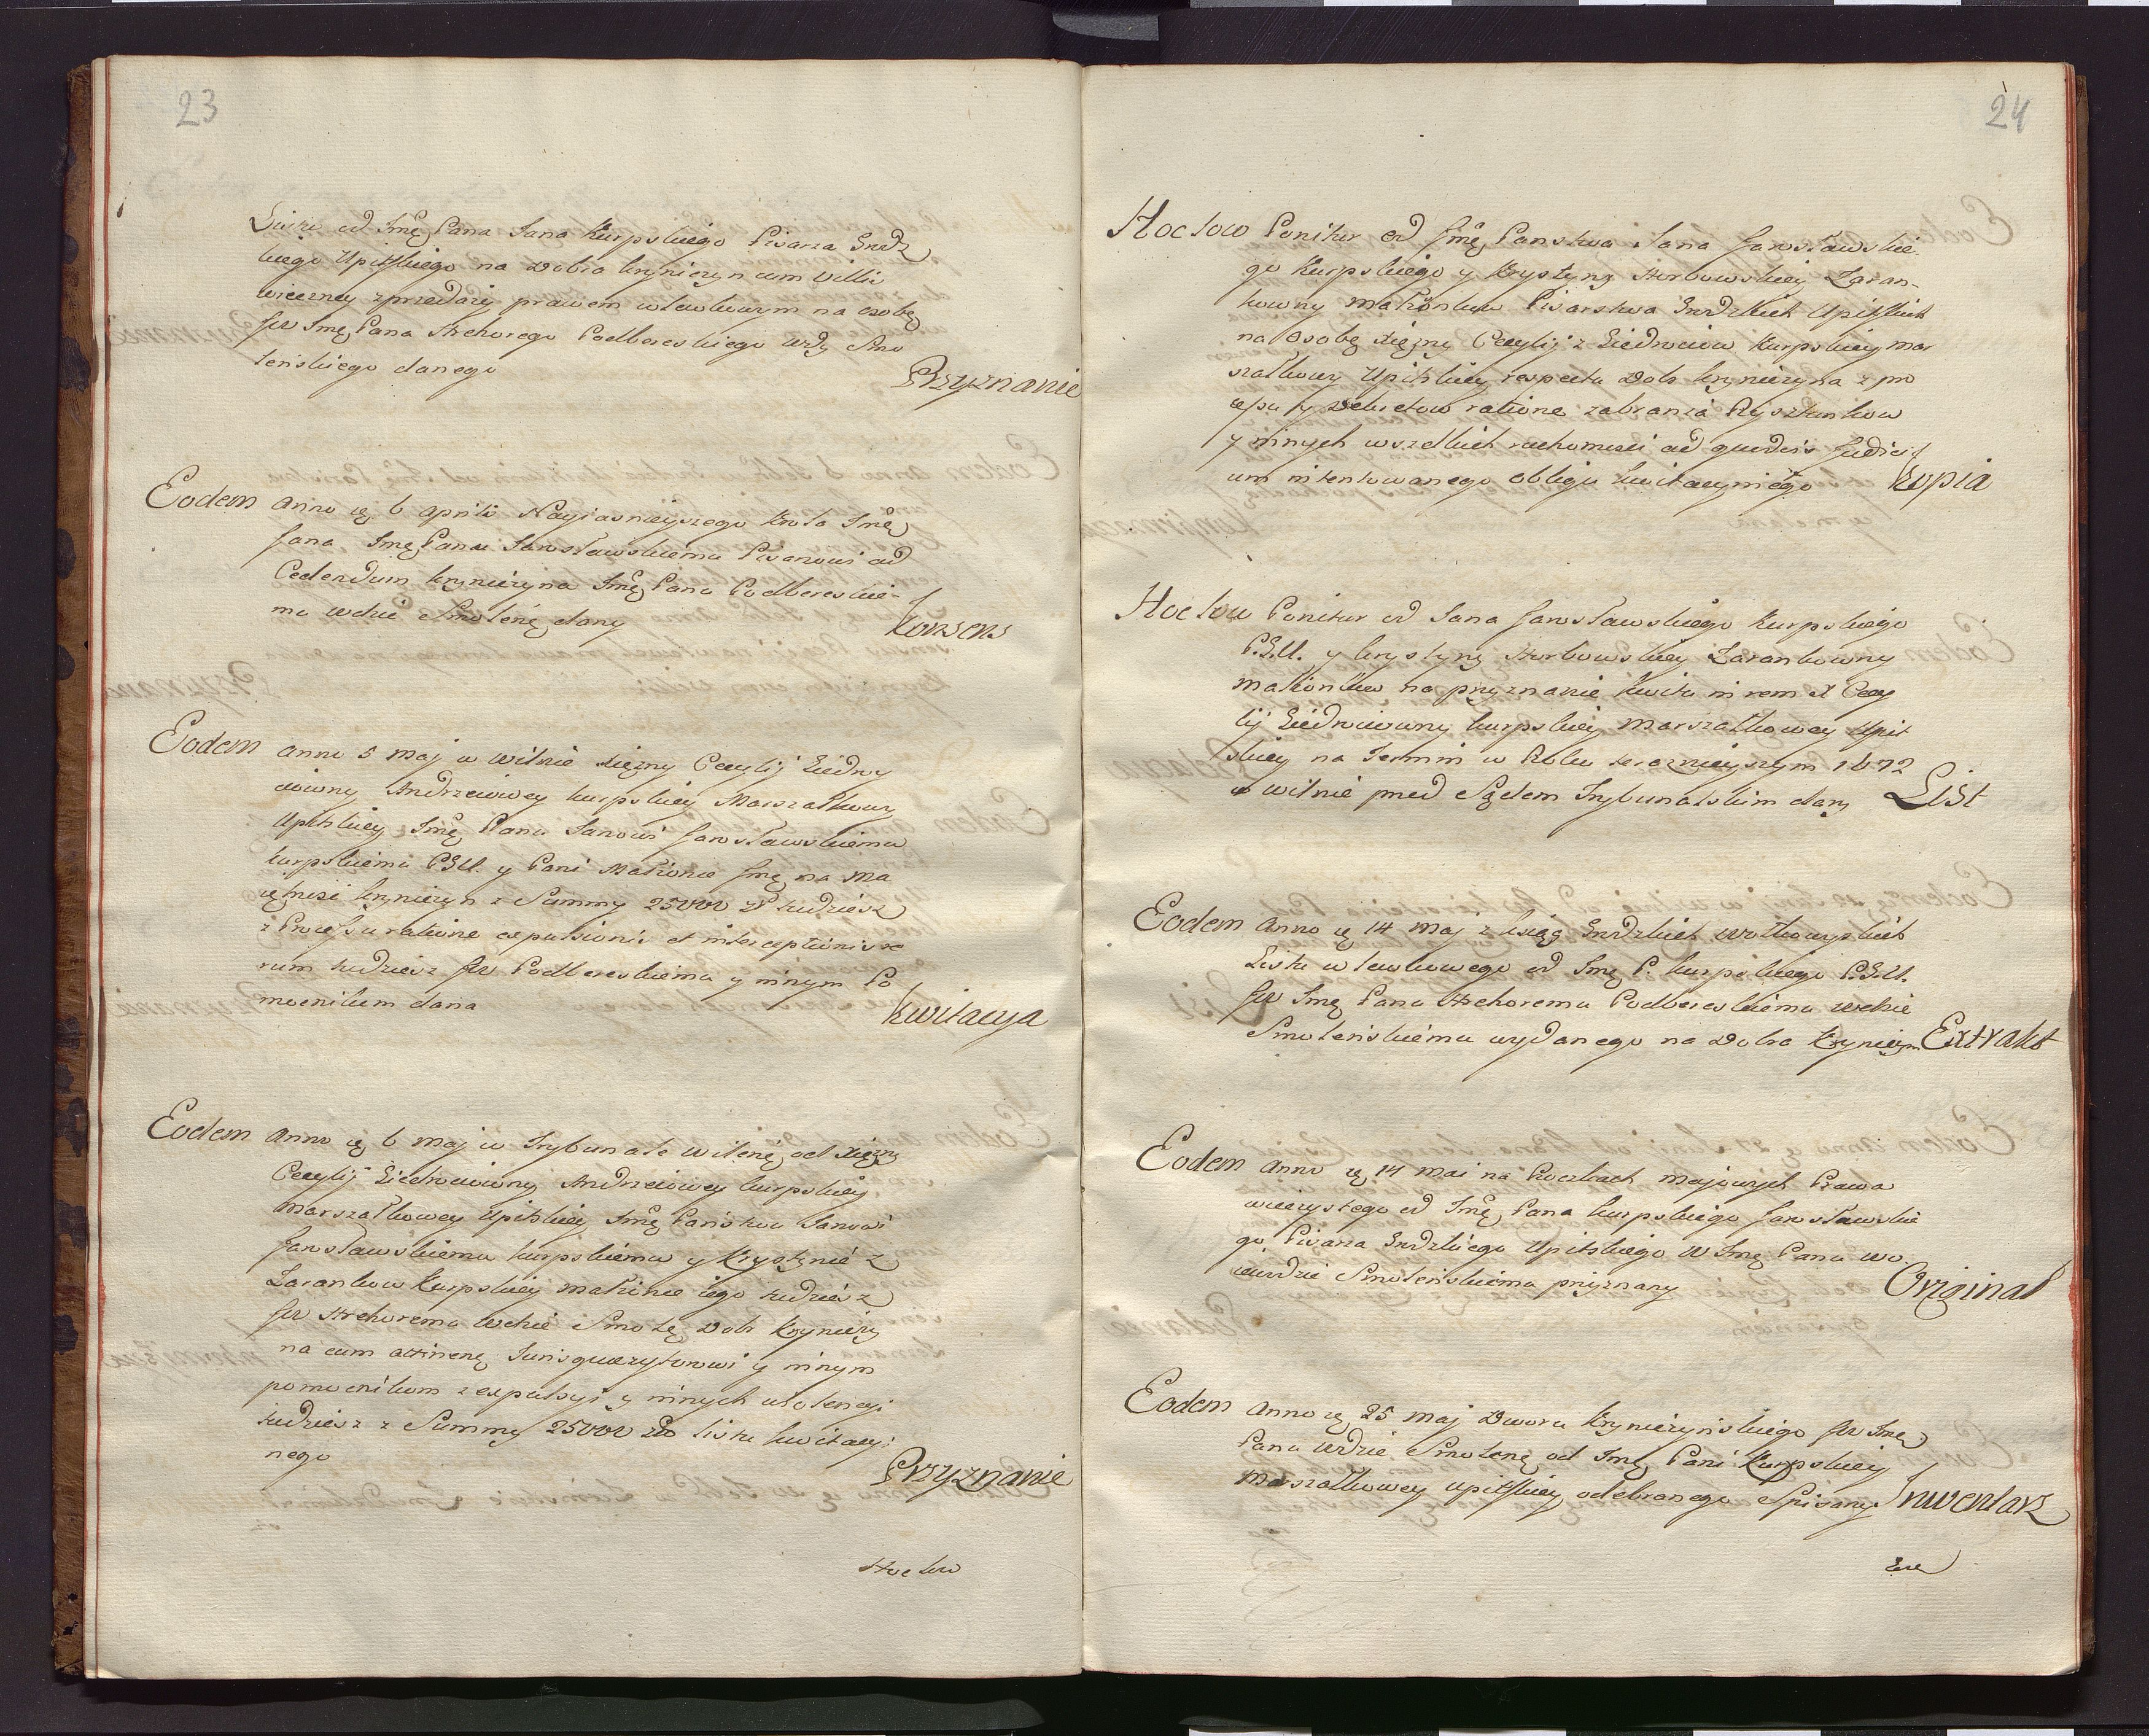 23
Listu od Jmę Pana Jana Kurpskiego Pisarza Grodz
kiego Upitskiego na Dobra Kryniczyn cum Villis
wieczney zprzedaży prawem wlewkowym na osobę
Jmę Pana Podbereskiego Wdy Smo
leńskiego danego
Przyznanie
Eodem anno 6 aprilis Nayiasnieyszego Krola Jmę
Jana Jmę Panu Jarosławskiemu Pisarowi ad
Cedendum Kryniczyna Jmę Panu Podbereskie-
mu wdzie Smoleńę dany
Konsens
Eodem anno 5 maj w Wilnie xiężny Cecylij Giedroy
ciowny Andrzeiowey Kurpskiey Marszałkowy
Upitskiey Jmę Panu Janowi Jarosławskiemu
Kurpskiemu PGU. y Pani Małżonce Jmę na Ma
iętności Kryniczyn z Summy 25000 zł tudziesz
z Processu ratione expulsionis et interceptionis re
rum tudziesz Podbereskiemu y innym Po
mocnikom dana
Kwitacya
Eodem anno 6 maj w Trybunale Wileńę od xiężny
Cecylij Giedrociowny Andrzeiowey Kurpskiey
Marszałkowey Upitskiey Jmę Państwu Janowi
Jarosławskiemu Kurpskiemu y Krystynie z
Zarankow Kurpskiey małżonce iego tudziesz
Wdzie Smolę Dobr Krynicży
na cum attinenę Jurisquaezytorowi y innym
pomocnikom z expulsyi y innych
tudziesz z Summy 25000 zło listu kwitacyi
nego
Przyznanie
Hoctow
24
Hoctow Ponitur od Jmę Panstwa Jana Jarosławskie
go Kurpskiego y Krystyny Horbowskiey Zaran-
kowny małżonkow Pisarstwa Grodzkich Upitskich
na osobę xiężny Cecylij z Giedrociow Kurpskiey mar
szałkowy Upitskiey respectu Dobr Krynicżyna z pro
cessu y Dekretow ratione zabrania Rysztunkow
y innych wszelkich ruchomości ad quodvis Judici
um intentowanego obligu kwitacyinego
Kopia
Hoctow Ponitur od Jana Jarosławskiego Kurpskiego
P.G.U. y Krystyny Horbowskiey Zarankowny
małżonkow na przyznanie kwitu in rem et Cecy
lij Giedrociowny Kurpskiey Marszałkowey Upit
skiey na Termin w Roku teraznieyszym 1672
w Wilnie przed Sądem Trybunalskim dany
List
Eodem Anno 14 maj z xiąg Grodzkich Wołkowyskich
Listu wlewkowego od Jmę P. Kurpskiego P.G.U.
Jmę Panu Podbereskiemu wdzie
Smoleńskiemu wydanego na Dobra Krynicżyn
Extrakt
Eodem Anno 14 mai na Roczkach majowych Prawa
wieczystego od Jmę Pana Kurpskiego Jarosławskie
go Pisarza Grodzkiego Upitskiego W Jmę Panu Wo
iewodzie Smoleńskiemu przyznany
Original
Eodem Anno 25 maj Dworu Krynicżyńskiego Jmę
Panu Wdzie Smoleńę od Jmę Pani Kurpskiey
Marszałkowey Upitskiey odebranego Spisany
Inwentarz